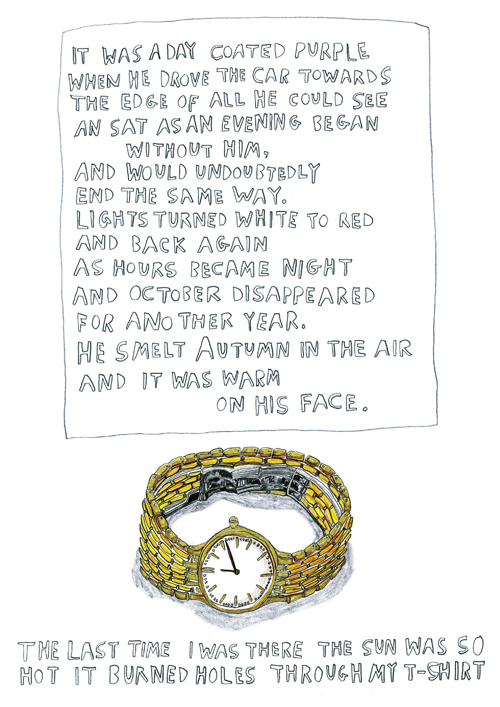 IT WAS A DAY COATED PURPLE
WHEN HE DROVE THE CAR TOWARDS
THE EDGE OF ALL HE COULD SEE
AN SAT AS AN EVENING BEGAN
WITHOUT HIM,
AND WOULD UNDOUBTEDLY
END THE SAME WAY.
LIGHTS TURNED WHITE TO RED
AND BACK AGAIN
AS HOURS BECAME NIGHT
AND OCTOBER DISAPPEARED
FOR ANOTHER YEAR.
HE SMELT AUTUMN IN THE AIR
AND IT WAS WARM
ON HIS FACE.
THE LAST TIME I WAS THERE THE SUN WAS SO
HOT IT BURNED HOLES THROUGH MY T-SHIRT